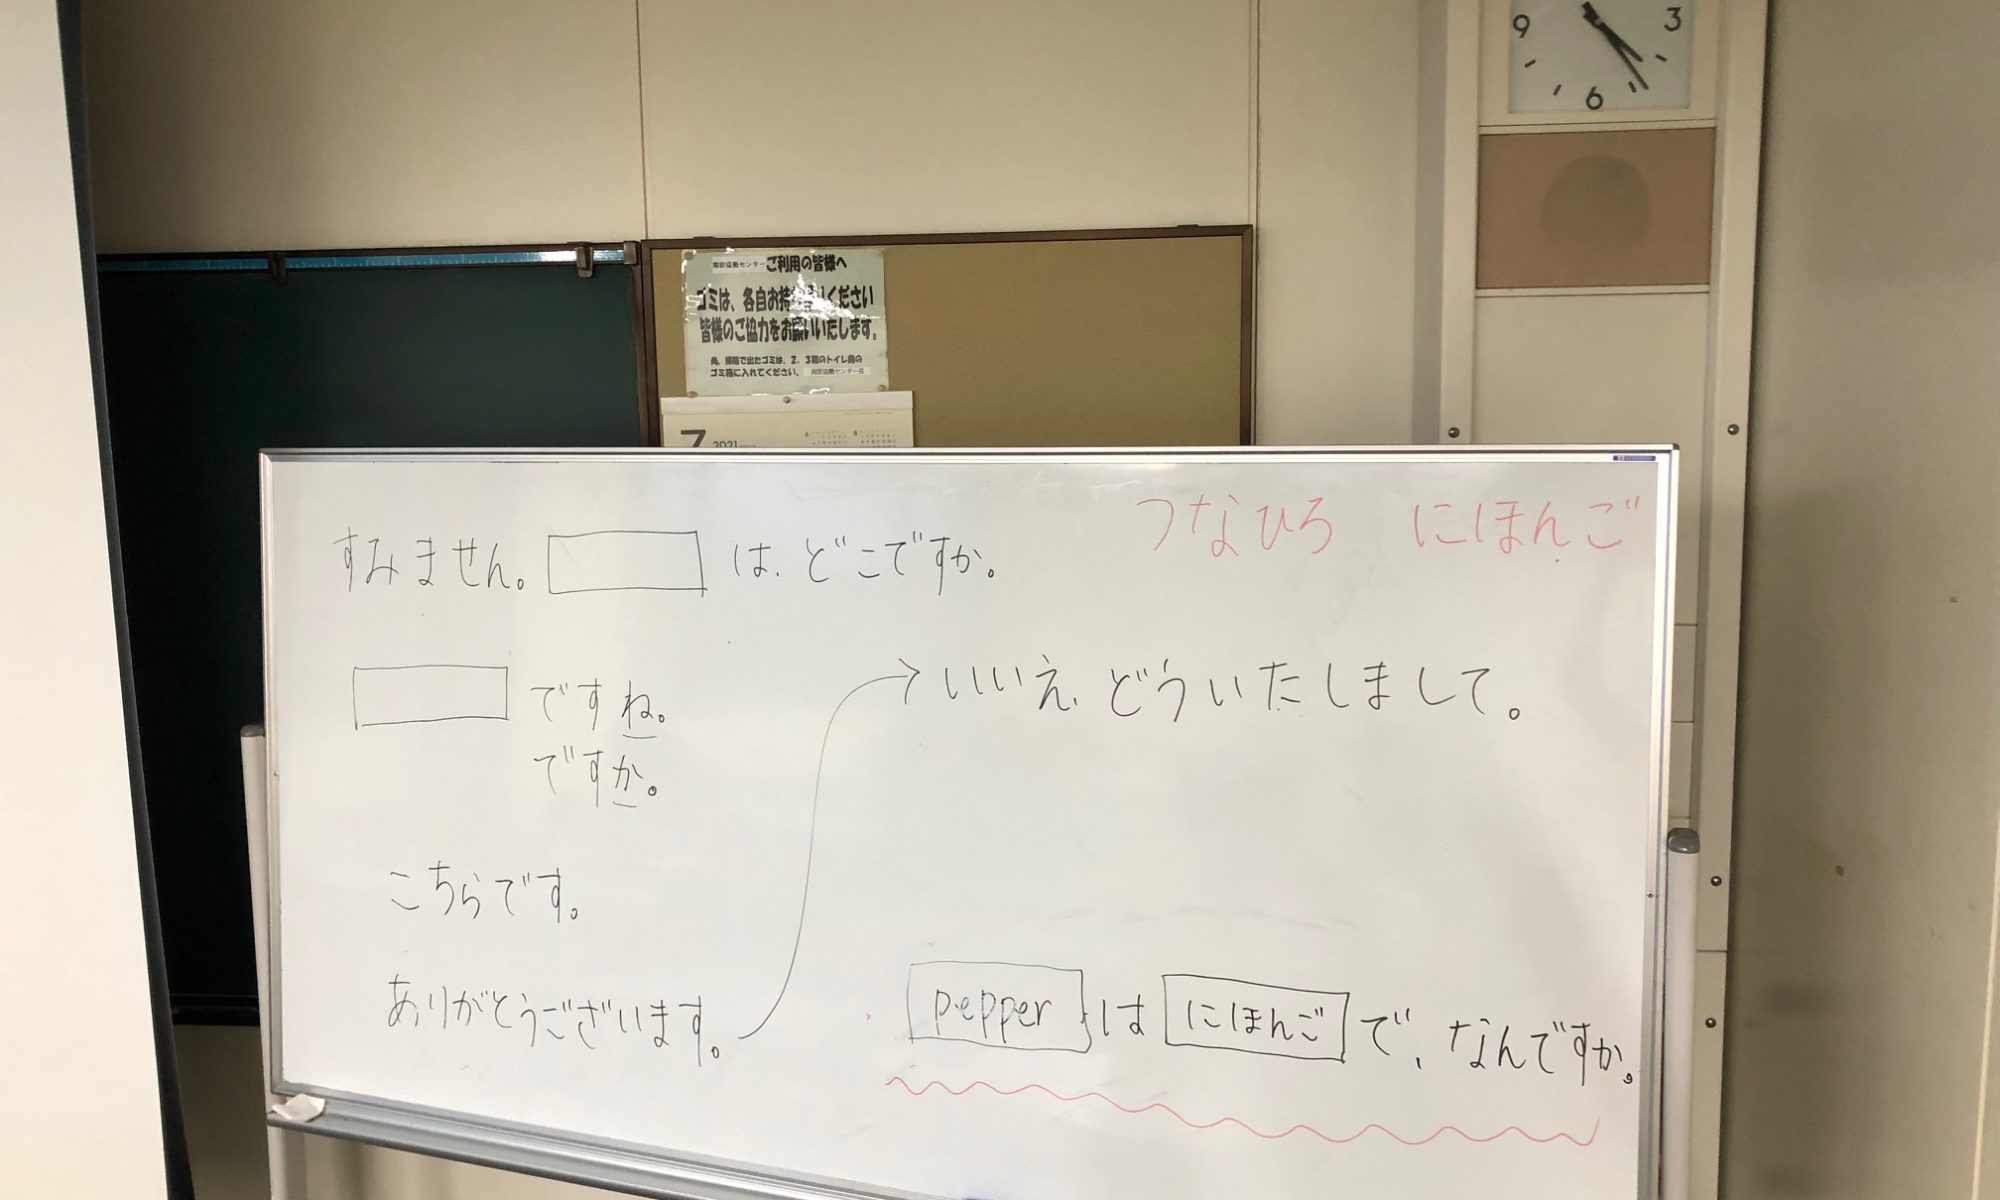 9
3
6
南部協働センターご利用の皆様へ
ゴミは、各自お持ち帰りください
皆様のご協力をお願いいたします。
尚、掃除で出たゴミは、2、3階のトイレ前の
ゴミ箱に入れてください。 南部協働センター長
7 2021 6 8
つなひろ にほんご
すみません。 は、どこですか。
ですね。
ですか。
いいえ、どういたしまして。
こちらです。
ありがとうございます。
pepper は にほんご で、なんですか。